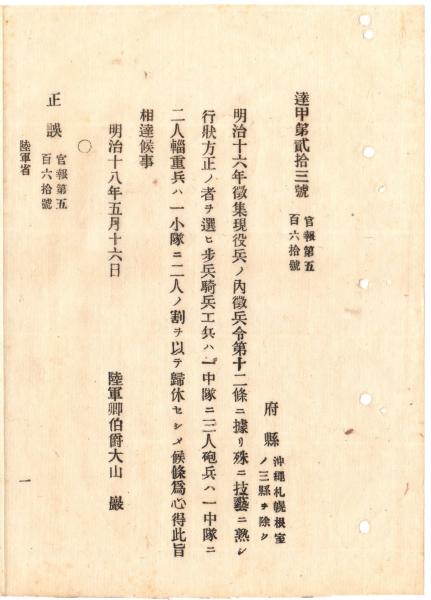 達甲第貳拾三號
官報第五
百六拾號
府縣
沖繩札幌根室
ノ三縣ヲ除ク
明治十六年徵集現役兵ノ內徵兵令第十二條ニ據リ殊ニ技藝ニ熟シ
行狀方正ノ者ヲ選ヒ步兵騎兵工兵ハ一中隊ニ三人砲兵ハ一中隊ニ
二人輜重兵ハ一小隊ニ二人ノ割ヲ以テ歸休セシメ候條爲心得此旨
相達候事
明治十八年五月十六日
陸軍卿伯爵大山巖
○
正誤
官報第五
百六拾號
陸軍省
一